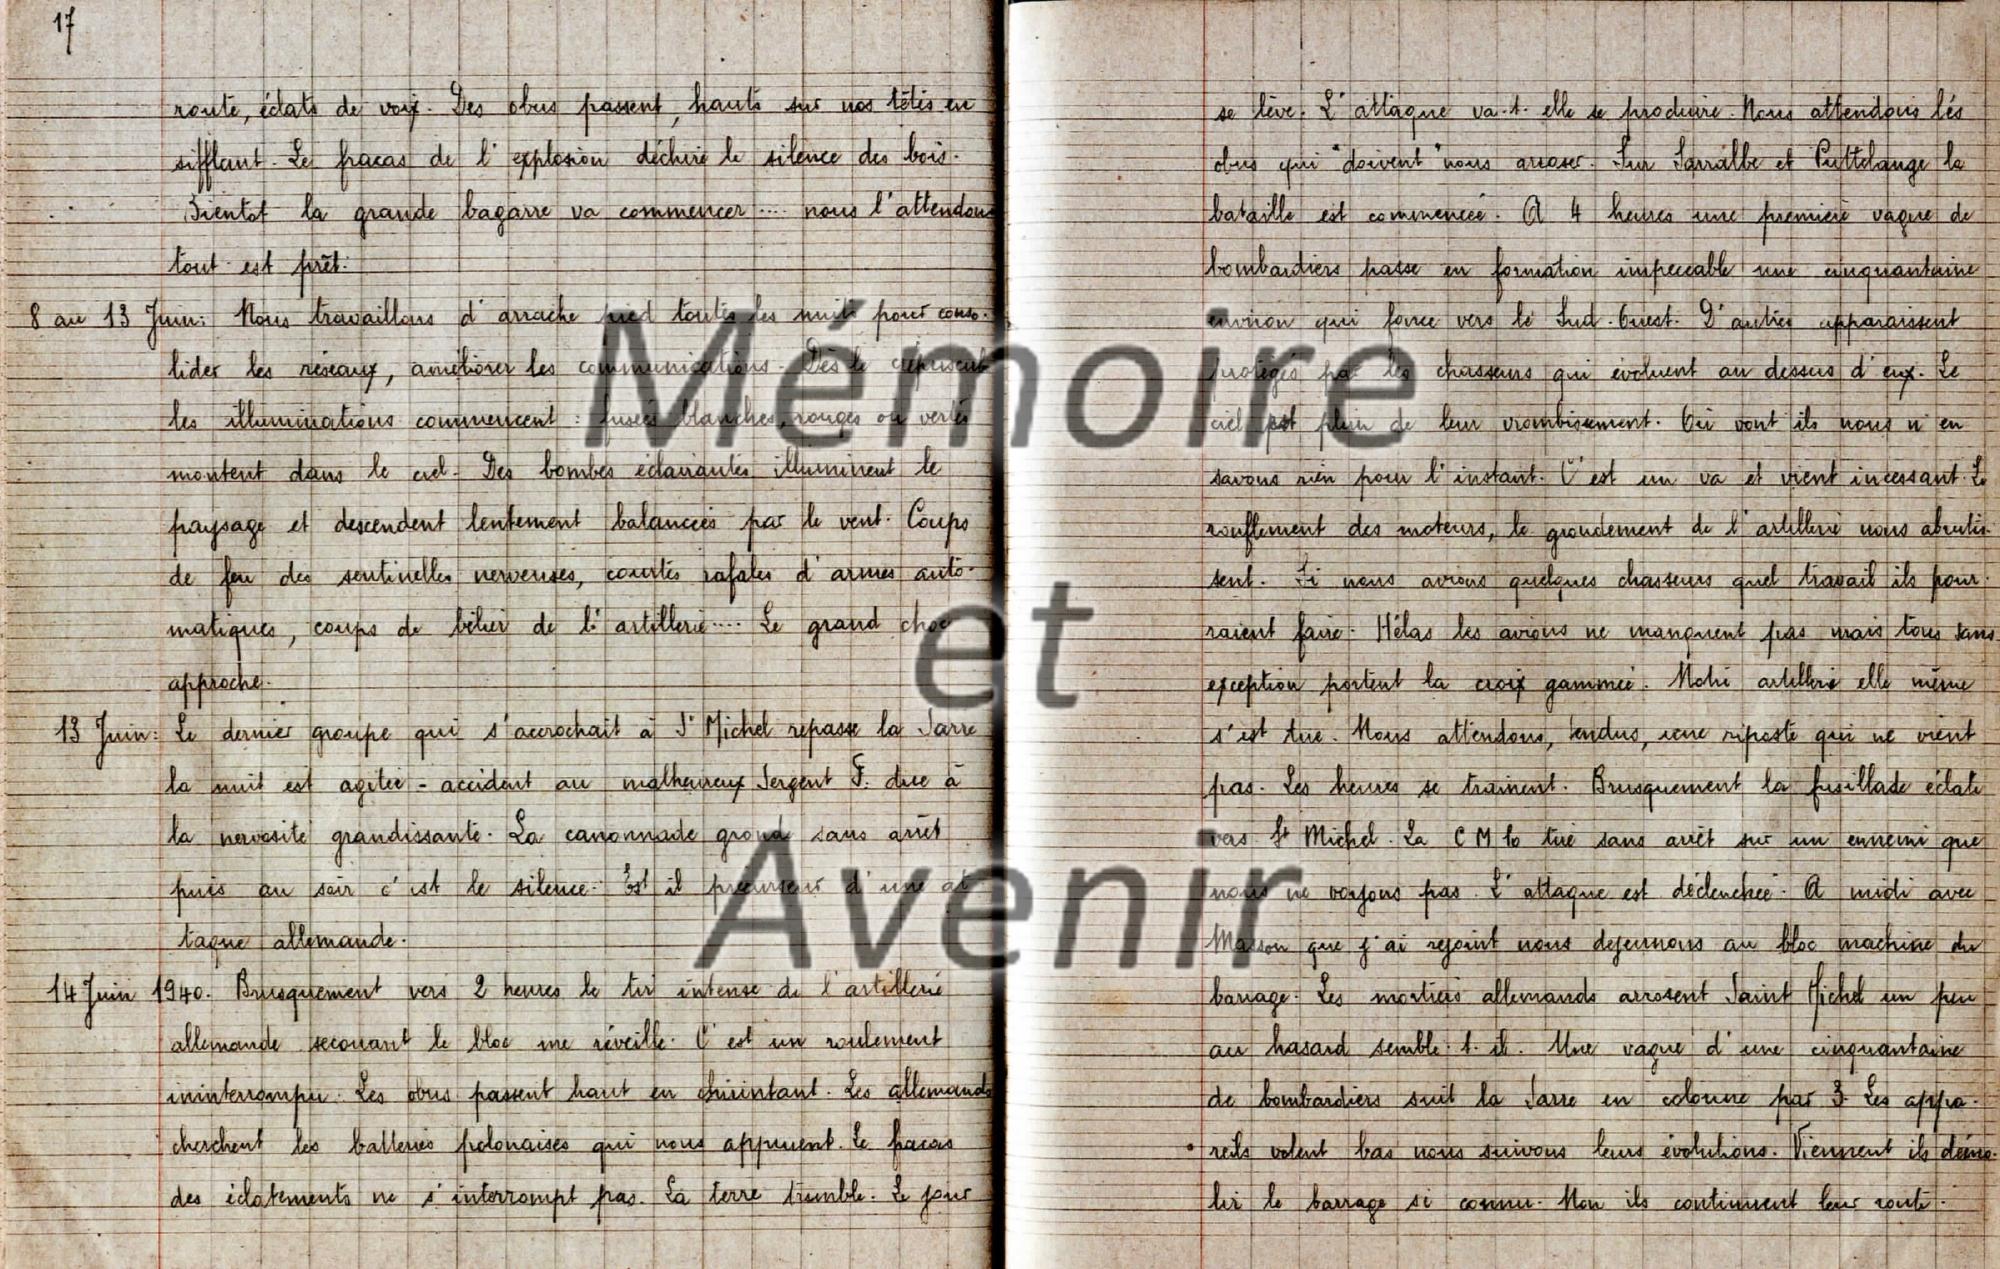 17
route, éclats de voix. Des obus passent, hauts sur nos têtes en
sifflant. Le fracas de l'explosion déchire le silence des bois.
Bientot la grande bagarre va commencer .... nous l'attendons
tout est prêt.
8 au 13 Juin: Nous travaillons d'arrache pied toutes les nuits pour conso-
lider les réseaux, améliorer les communications. Dès le crépuscule
les illuminations commencent : fusées blanches, rouges ou vertes
montent dans le ciel. Des bombes éclairantes illuminent le
paysage et descendent lentement balancées par le vent. Coups
de feu des sentinelles nerveuses, courtes rafales d'armes auto-
matiques, coups de bélier de l'artillerie.... Le grand choc
approche.
13 Juin: Le dernier groupe qui s'accrochait à St Michel repasse la Sarre
la nuit est agitée - accident au malheureux Sergent F. due à
la nervosité grandissante. La canonnade gronde sans arrêt
puis au soir c'est le silence. Est il précurseur d'une at-
taque allemande.
14 Juin 1940. Brusquement vers 2 heures le tir intense de l'artillerie
allemande secouant le bloc me réveille. C'est un roulement
ininterrompu. Les obus passent haut en chuintant. Les allemands
cherchent les batteries polonaises qui nous appuient. Le fracas
des éclatements ne s'interrompt pas. La terre tremble. Le jour
se lève. L'attaque va-t-elle se produire. Nous attendons les
obus qui "doivent" nous arroser. Sur Sarralbe et Puttelange la
bataille est commencée. A 4 heures une première vague de
bombardiers passe en formation impeccable une cinquantaine
environ qui fonce vers le Sud-Ouest. D'autres apparaissent
protégés par les chasseurs qui évoluent au dessus d'eux. Le
ciel est plein de leur vrombissement. Où vont ils nous n'en
savons rien pour l'instant. C'est un va et vient incessant. Le
ronflement des moteurs, le grondement de l'artillerie nous abrutis-
sent. Si nous avions quelques chasseurs quel travail ils pour-
raient faire. Hélas les avions ne manquent pas mais tous sans
exception portent la croix gammée. Notre artillerie elle même
s'est tue. Nous attendons, tendus, une riposte qui ne vient
pas. Les heures se trainent. Brusquement la fusillade éclate
vers St Michel. La CM 10 tire sans arrêt sur un ennemi que
nous ne voyons pas. L'attaque est déclenchée. A midi avec
Masson que j'ai rejoint nous dejeunons au bloc machine du
barrage. Les mortiers allemands arrosent Saint Michel un peu
au hasard semble-t-il. Une vague d'une cinquantaine
de bombardiers suit la Sarre en colonne par 3. Les appa-
reils volent bas nous suivons leurs évolutions. Viennent ils démo-
lir le barrage si connu. Non ils continuent leur route.
Mémoire
et
Avenir